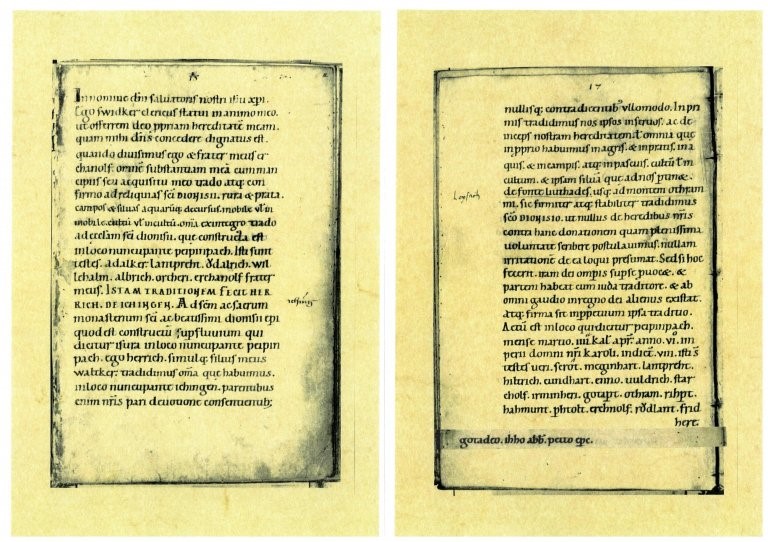 In nomine dñi saluatoris nostri ihu xpi.
Ego swidker clericus statui in animo meo.
ut offerrem deo ppriam hereditatē meam.
quam mihi dñs concedere dignatus est.
quando diuisimus ego & frater meus er
chanolf. omnē substantiam meā cum man
cipiis seu acquisitu meo trado atq; con
firmo ad reliquias sc̄i DIONISII. rura & prata.
campos & siluas aquarūq; decursus. mobile ul in
mobile. cultū ul incultū. oma ex integro trado
ad ecclam sc̄i dionisii. que constructa est
in loco nuncupante peipinpach. Isti sunt
testes. adalker. lantpreht. Odalrich. wil
lehalm. albrich. orthen. erchanolf frater
meus. ISTAM TRADITIONEM FECIT HER
RICH. DE ICHINGEN. Ad sc̄em ac sacrum
monasterium sc̄i ac beatissimi dionisii epi
quod est constructū sup fluuium qui
dicitur isura in loco nuncupante peipin
pach. ego herrich. simulq; filius meus
waltker. tradidimus oma que habuimus.
in loco nuncupante ichingen. parentibus
enim nr̄is pari deuotione consentientib;
17
nullisq; contradicentib; ullo modo. In pri
mis tradidimus nos ipsos in seruos. ac de
inceps nostram hereditatem. ul omnia que
in pprio habuimus in agris. & in pratis. in a
quis. & in campis. atq; in pascuis. cultū ul in
cultum. & ipsam siluā que ad nos ptinet.
de fonte liuthades. usq; ad montem othram
ni. sic firmiter atq; stabiliter tradidimus
sc̄o DIONISIO. ut nullus de heredibus nr̄is
contra hanc donationem quam plenissima
uoluntate scribere postulauimus. nullam
irritationē de ea loqui presumat. Sed si hoc
fecerit. iram dei omnipotentis sup se puocet. &
partem habeat cum iuda traditore. & ab
omni gaudio in regno dei alienus existat.
atq; firma sit in ppetuum ipsa traditio.
Actū est in loco qui dicitur peipinpach.
mense martio. iiii. kal. apr̄. anno. vi. im
perii domni nr̄i karoli. indict. viii. isti s̄
testes ueri. serot. meginhart. lantpreht.
hiltrich. cundhart. enno. uuldrich. star
cholf. irminheri. gotapt. othram. rihpt.
hahmunt. phtolt. erchnolf. rŏdlant. frid
heri.
gotadeo. ihho abb. petto epc.